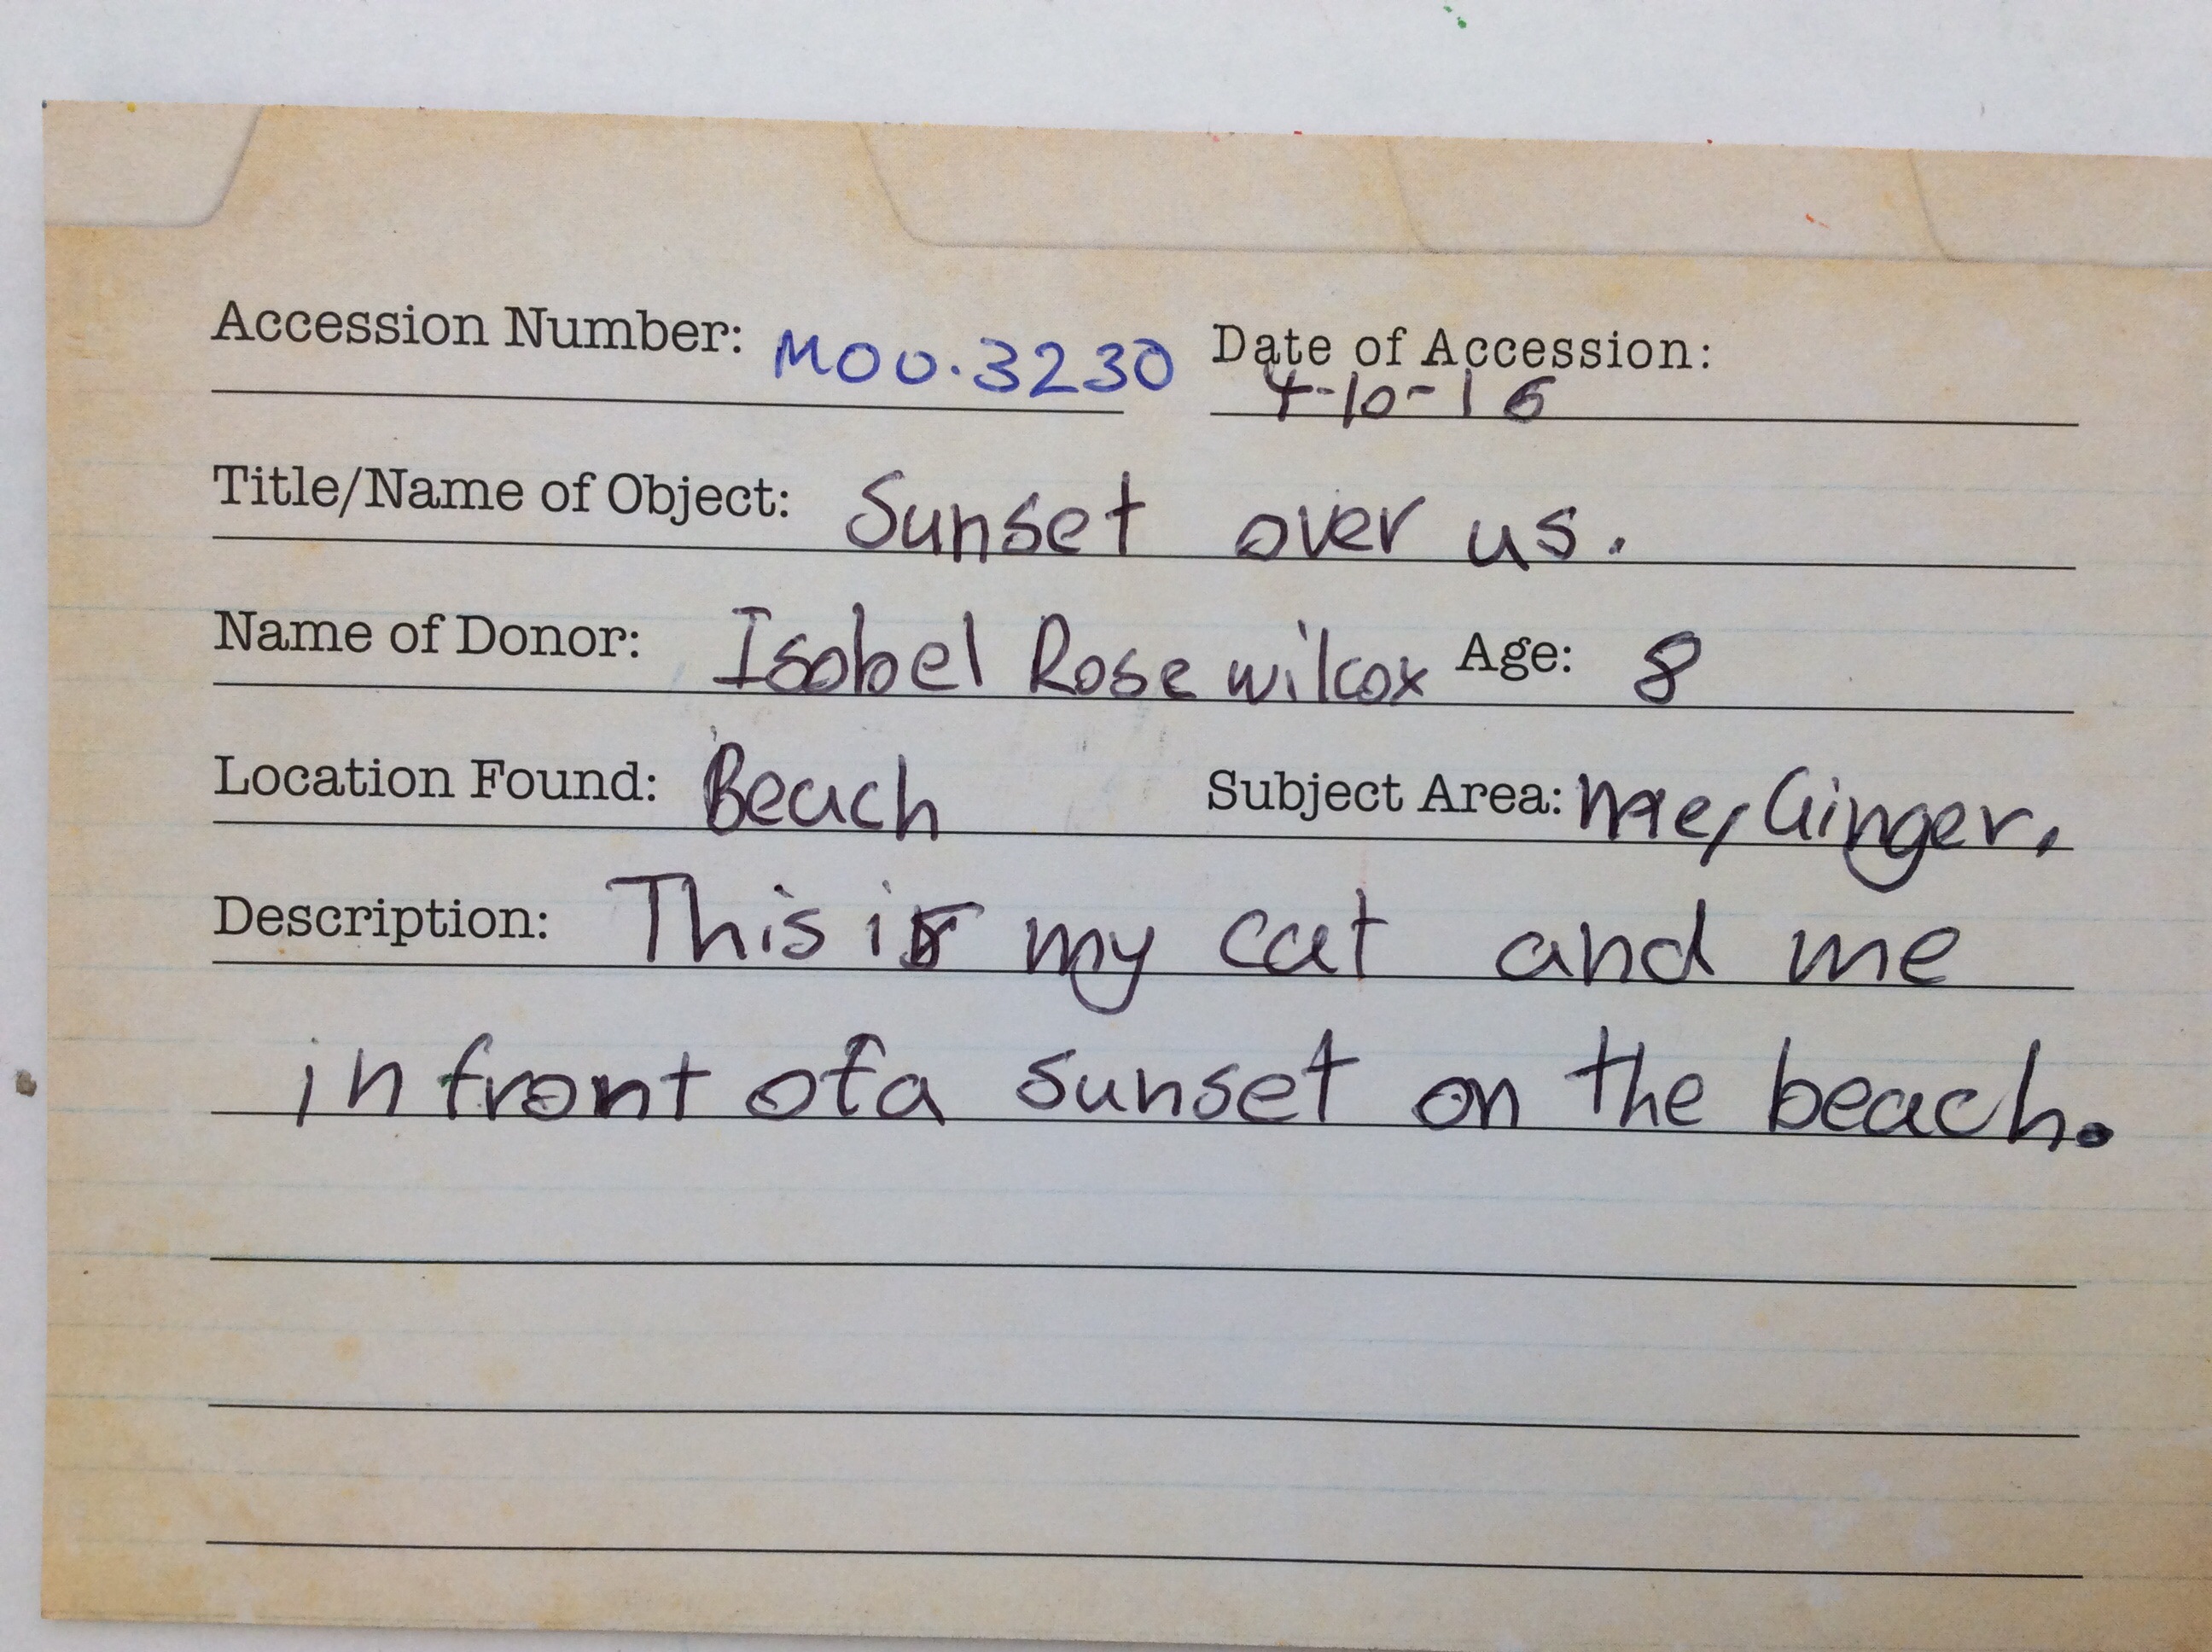 Accession Number: MOU.3230 Date of Accession:
4-10-16
Title/Name of Object: Sunset over us.
Name of Donor: Isobel Rose wilcox Age: 8
Location Found: Beach Subject Area: me, Ginger.
Description: This is my cat and me
in front of a sunset on the beach.